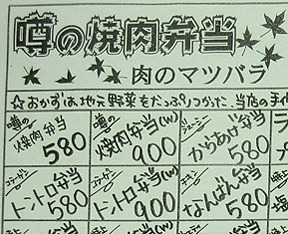 噂の焼肉弁当
肉のマツバラ
☆おかずは、地元野菜をたっぷりつかった、当店の手作
噂の
焼肉弁当
580
噂の
焼肉弁当(W)
900
ジューシー
からあげ弁当
580
トントロ弁当
580
トントロ弁当(W)
900
なんばん弁当
580